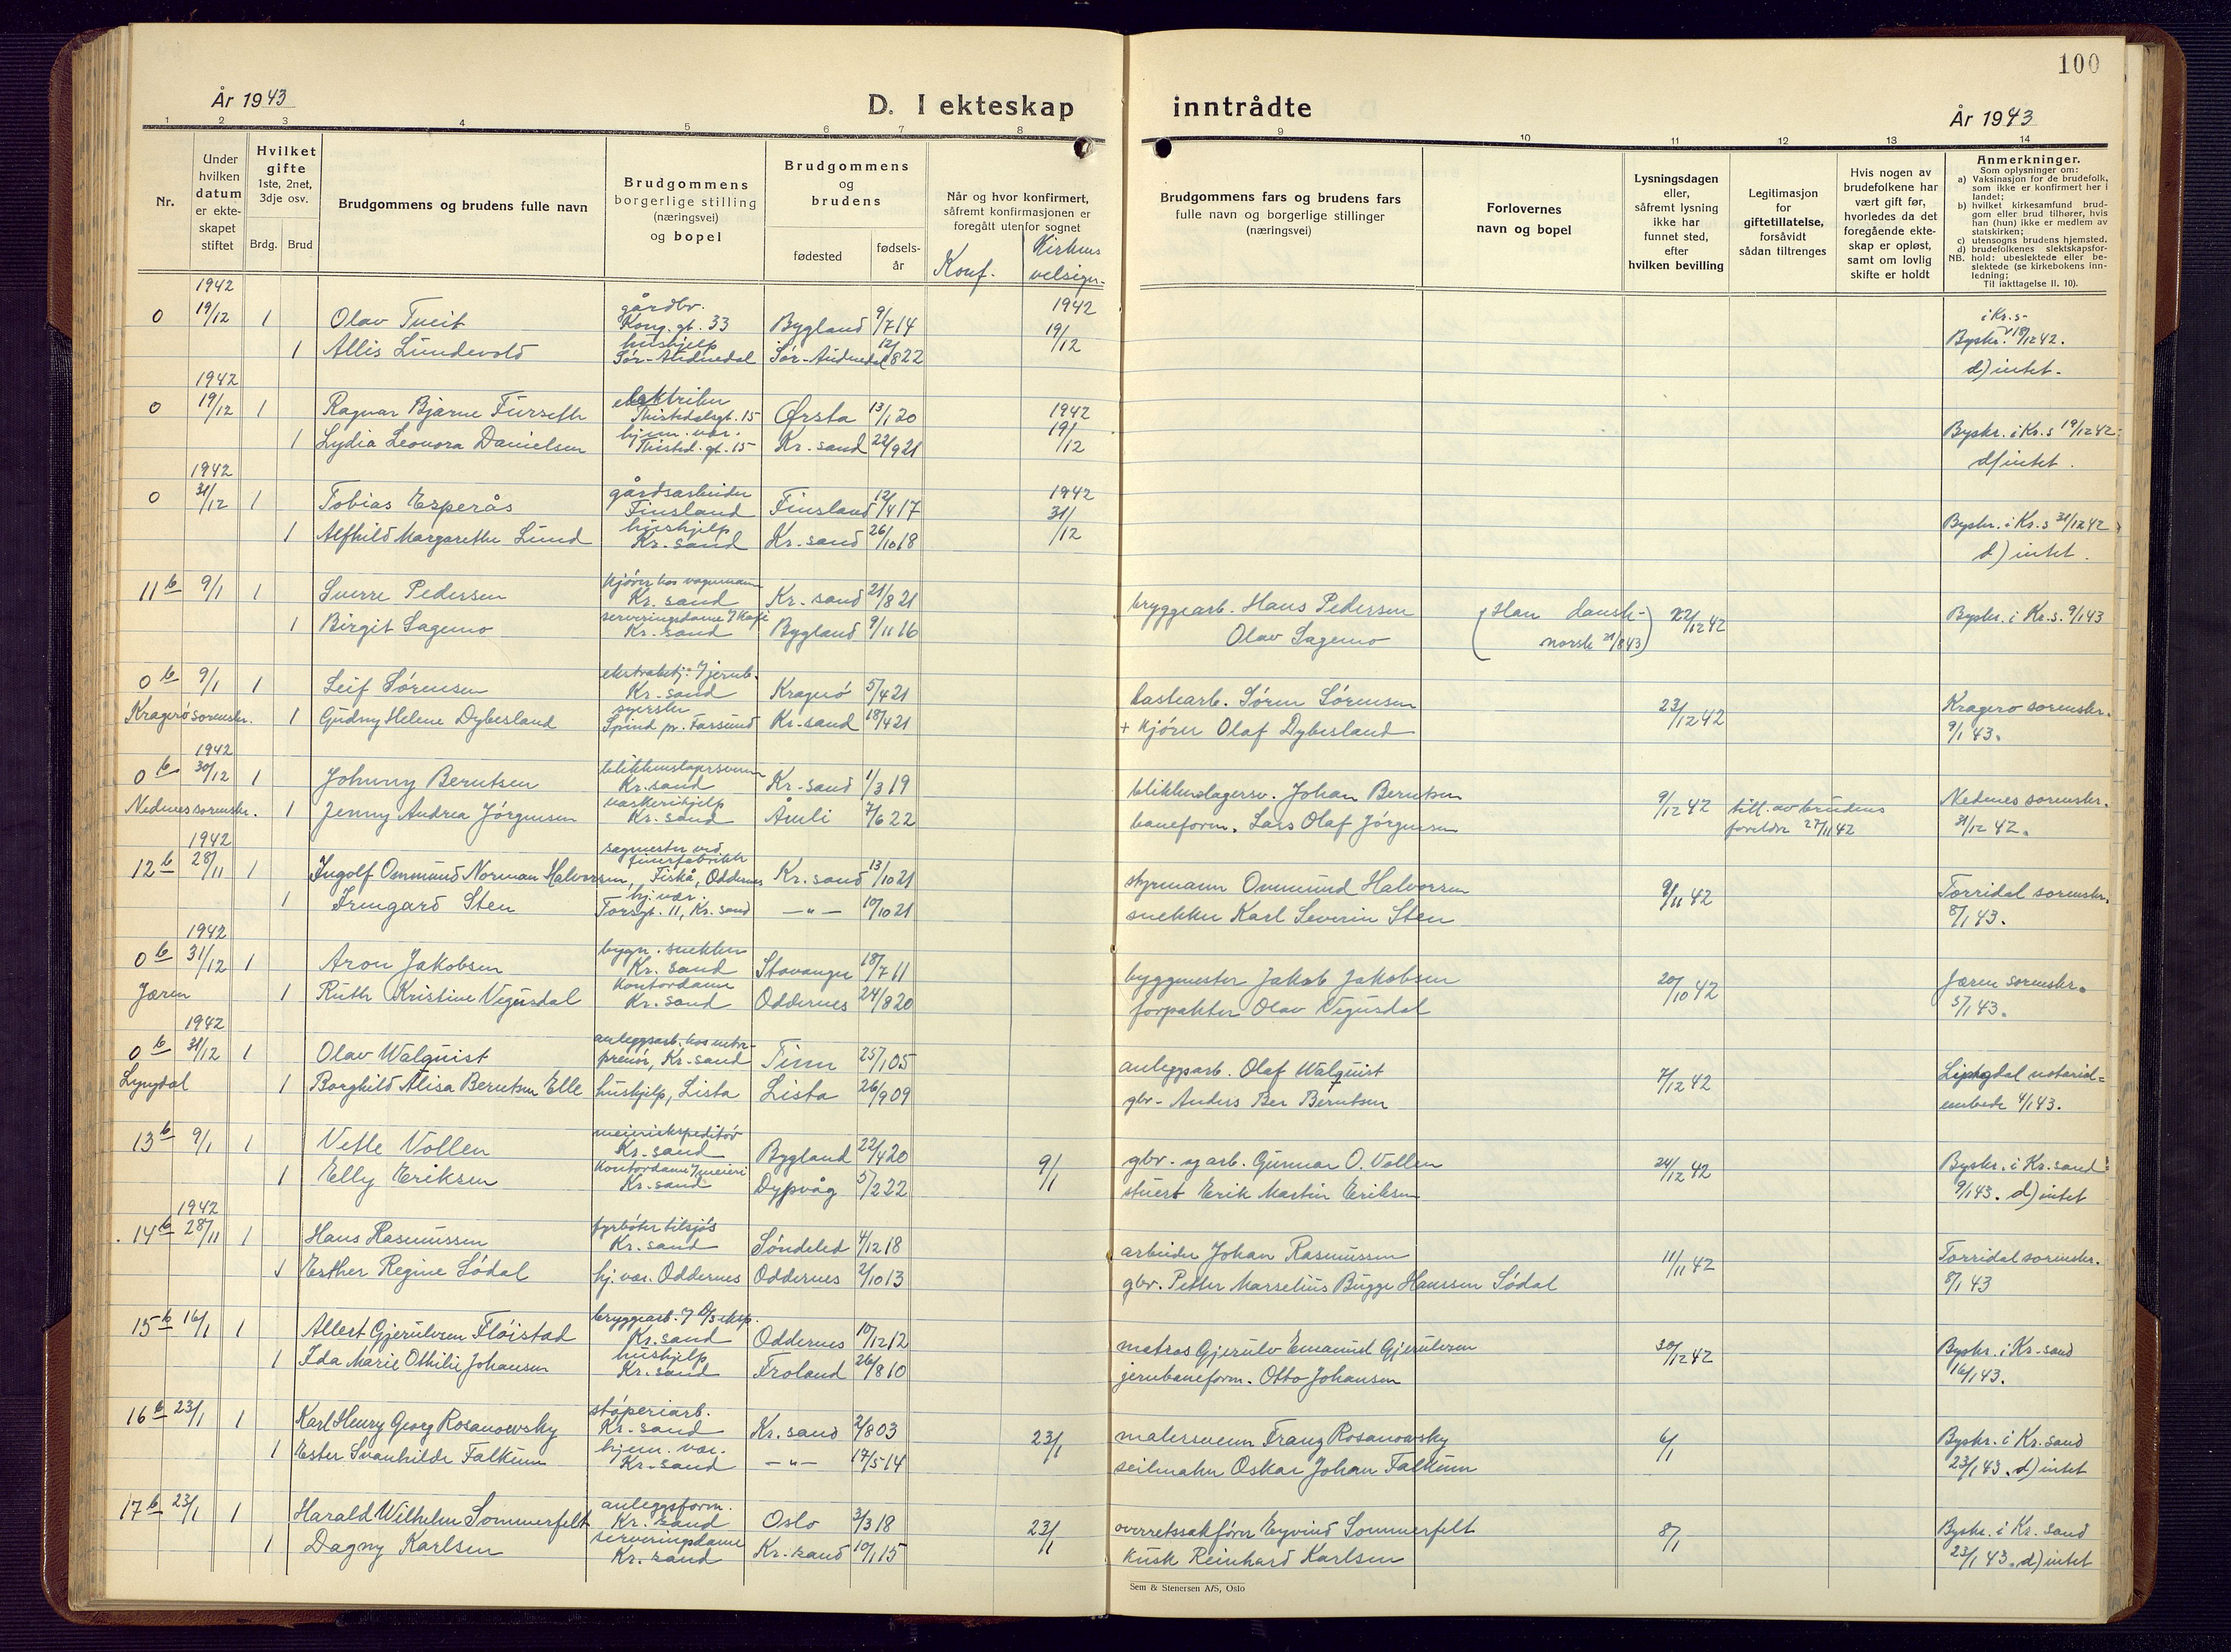 100
År 1943
D. I ekteskap inntrådte
År 1943
1 2 3 4 5 6 7 8 9 10 11 12 13 14
Nr.
Under hvilken datum er ekte-skapet stiftet
Hvilket gifte 1ste, 2net, 3dje osv.
Brdg. Brud
Brudgommens og brudens fulle navn
Brudgommens borgerlige stilling (næringsvei) og bopel
Brudgommens og brudens
fødested fødsels-år
Når og hvor konfirmert, såfremt konfirmasjonen er foregått utenfor sognet
Konf. Kirkens velsign.
Brudgommens fars og brudens fars fulle navn og borgerlige stillinger (næringsvei)
Forlovernes navn og bopel
Lysningsdagen eller, såfremt lysning ikke har funnet sted, efter hvilken bevilling
Legitimasjon for giftetillatelse, forsåvidt sådan tiltrenges
Hvis nogen av brudefolkene har vært gift før, hvorledes da det foregående ekte-skap er opløst, samt om lovlig skifte er holdt
Anmerkninger.
Som oplysninger om:
a) Vaksinasjon for de brudefolk, som ikke er konfirmert her i landet;
b) hvilket kirkesamfund brud-gom eller brud tilhører, hvis han (hun) ikke er medlem av statskirken;
c) utensogns brudens hjemsted.
d) brudefolkenes slektskapsfor-hold: ubeslektede eller be-slektede (se kirkebokens inn-ledning;
NB. Til iakttagelse II. 10).
1942 gårdbr. 1942 i Kr.s-
0 19/12 1 Olav Tveit Kong. gt. 33 Bygland 9/7 14 19/12 Byskr. 19/12 42.
1 Allis Lundevold hushjelp Sør-Audnedal Sør-Audnedal 12/8 22 d) intet.
1942
0 19/12 1 Ragnar Bjarne Furseth elektriker Thistedalsgt. 15 Ørsta 13/1 20 1942 19/12
1 Lydia Leonora Danielsen hjem. vær. Thisted. gt. 15 Kr. sand 22/9 21 Byskr. i Kr.s 19/12 42. d) intet.
1942
0 31/12 1 Tobias Esperås gårdsarbeider Finsland Finsland 12/4 17 1942 31/12
1 Alfhild Margarethe Lund hushjelp Kr. sand Kr. sand 26/10 18 Byskr. i Kr.s 31/12 42 d) intet.
11 b 9/1 1 Sverre Pedersen Kr. sand Kr. sand 21/8 21 bryggearb. Hans Pedersen (Han dansk- 22/12 42 Byskr. i Kr.s. 9/1 43
1 Birgit Sagemo serveringsdame Kr. sand Bygland 9/11 16 Olav Sagemo norsk 21/8 43)
0 b 9/1 1 Leif Sørensen Kr. sand Kragerø 5/4 21 lastearb. Søren Sørensen 23/12 42 Kragerø sorenskr.
Kragerø sorenskr. 1 Gudny Helene Dybesland syerske Spind pr. Farsund Kr. sand 18/4 21 + kjører Olaf Dybesland 9/1 43.
1942
0 b 30/12 1 Johnny Berntsen blikkenslagersvenn Kr. sand Kr. sand 1/3 19 blikkenslagersv. Johan Berntsen 9/12 42 till. av brudens Nedenes sorenskr.
Nedenes sorenskr. 1 Jenny Andrea Jørgensen vaskerihjelp Kr. sand Åmli 7/6 22 baneform. Lars Olaf Jørgensen foreldre 27/11 42 31/12 42.
1942
12 b 28/11 1 Ingolf Ommund Norman Halvorsen, sagmester ved finerfabrikk Fiskå, Oddernes Kr. sand 13/10 21 styrmann Ommund Halvorsen 9/11 42 Torridal sorenskr.
1 Irmgard Sten hj. vær. Torsgt. 11, Kr. sand —"— 10/10 21 snekker Karl Severin Sten 8/1 43.
1942
0 b 31/12 1 Aron Jakobsen bygn. snekker Kr. sand Stavanger 18/7 11 byggmester Jakob Jakobsen 20/10 42 Jæren sorenskr.
Jæren 1 Ruth Kristine Vegusdal kontordame Kr. sand Oddernes 24/8 20 forpakter Olav Vegusdal 5/1 43.
1942
0 b 31/12 1 Olav Walquist anleggsarb. hos entre-prenør, Kr. sand Tinn 25/1 05 anleggsarb. Olaf Walquist 7/12 42 Lyngdal notarial=
Lyngdal 1 Borghild Alisa Berntsen Elle hushjelp, Lista Lista 26/9 09 gbr. Anders Ber Berntsen embede 4/1 43.
13 b 9/1 1 Vetle Vollen meieriekspeditør Kr. sand Bygland 22/4 20 9/1 gbr. og arb. Gunnar O. Vollen 24/12 42 Byskr. i Kr. sand
1 Elly Eriksen kontordame i meieri Kr. sand Dypvåg 5/2 22 stuert Erik Martin Eriksen 9/1 43. d) intet
1942
14 b 28/11 1 Hans Rasmussen fyrbøter tilsjøs Kr. sand Søndeled 4/12 18 arbeider Johan Rasmussen 11/11 42 Torridal sorenskr.
1 Esther Regine Sødal hj. vær. Oddernes Oddernes 2/10 13 gbr. Petter Marselius Bugge Hanssen Sødal 8/1 43
15 b 16/1 1 Allert Gjerulvsen Fløistad bryggearb. Kr. sand Oddernes 10/12 12 matros Gjerulv Emanuel Gjerulvsen 30/12 42 Byskr. i Kr. sand
1 Ida Marie Othilie Johansen hushjelp Kr. sand Froland 26/8 10 jernbaneform. Otto Johansen 16/1 43.
16 b 23/1 1 Karl Henry Georg Rosanowsky støperiarb. Kr. sand Kr. sand 2/8 03 23/1 malersvenn Franz Rosanowsky 6/1 Byskr. i Kr. sand
1 Ester Svanhilde Falkum hjem. vær. Kr. sand —"— 17/5 14 seilmaker Oskar Johan Falkum 23/1 43. d) intet
17 b 23/1 1 Harald Wilhelm Sommerfelt anleggsform. Kr. sand Oslo 3/3 18 23/1 overretssakfører Eyvind Sommerfelt 8/1 Byskr. i Kr. sand
1 Dagny Karlsen serveringsdame Kr. sand Kr. sand 10/1 15 kusk Reinhard Karlsen 23/1 43. d) intet
Sem & Stenersen A/S, Oslo